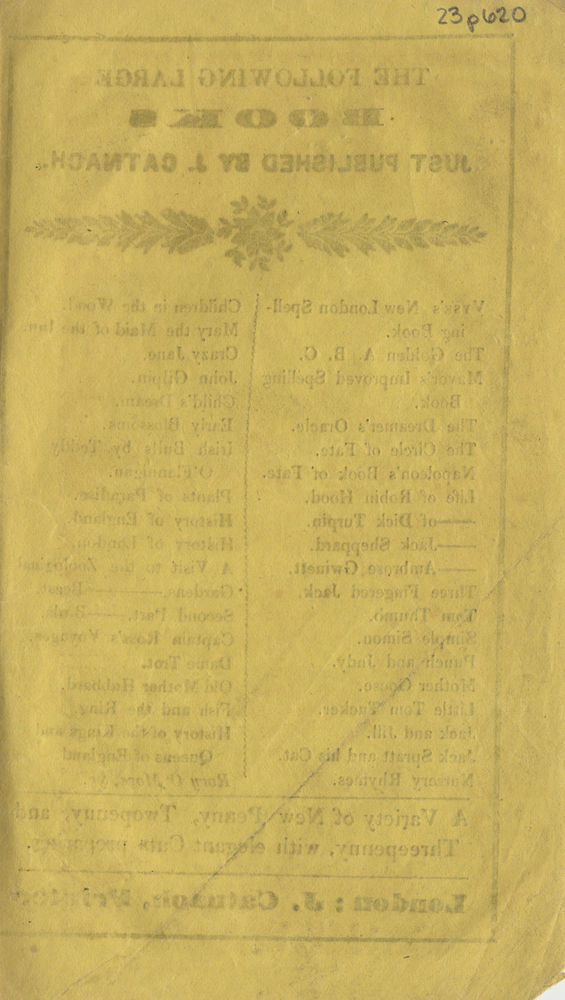 23p620
THE FOLLOWING LARGE
BOOKS
JUST PUBLISHED BY J. CATNACH.
Vyse's New London Spell-
ing Book.
The Golden A. B. C.
Mavor's Improved Spelling
Book.
The Dreamer's Oracle.
The Circle of Fate.
Napoleon's Book of Fate.
Life of Robin Hood.
——of Dick Turpin.
——Jack Sheppard.
——Ambrose Gwinett.
Three Fingered Jack.
Tom Thumb.
Simple Simon.
Punch and Judy.
Mother Goose.
Little Tom Tucker.
Jack and Jill.
Jack Spratt and his Cat.
Nursery Rhymes.
Children in the Wood.
Mary the Maid of the Inn.
Crazy Jane.
John Gilpin.
Child's Dream.
Early Blossoms.
Irish Bulls by Teddy
O'Flannigan.
Plants of Paradise.
History of England.
History of London.
A Visit to the Zoological
Gardens.———Beast.
Second Part.——Birds.
Captain Ross's Voyages.
Dame Trot.
Old Mother Hubbard.
Fish and the Ring.
History of the Kings and
Queens of England
Rory O'More, &c.
A Variety of New Penny, Twopenny, and
Threepenny, with elegant Cuts preparing.
London: J. Catnach, Printer